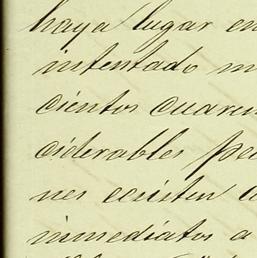 haya lugar en
intentado m
cientos cuaren
ciderables pe
nes ecsisten a
inmediatos a